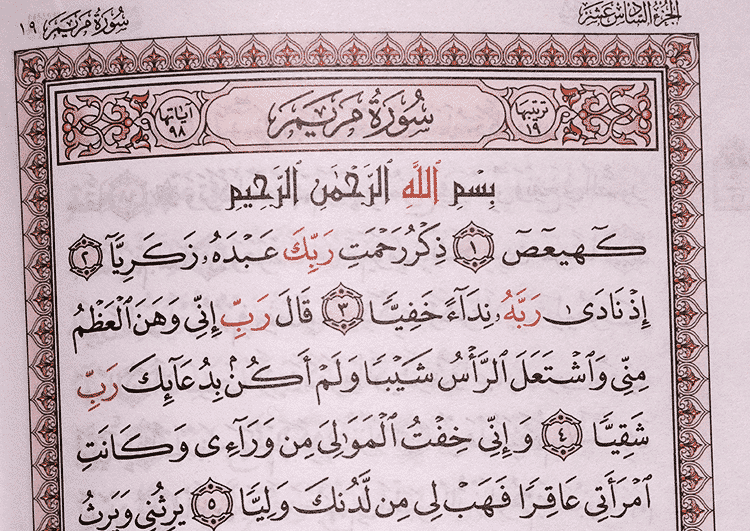 الجزء السادس عشر
سورة مريم ١٩
ترتيبها ١٩
سُورَةُ مَرْيَمَ
آياتها ٩٨
بِسْمِ ٱللَّهِ ٱلرَّحْمَٰنِ ٱلرَّحِيمِ
كٓهيعٓصٓ ١ ذِكْرُ رَحْمَتِ رَبِّكَ عَبْدَهُۥ زَكَرِيَّآ ٢
إِذْ نَادَىٰ رَبَّهُۥ نِدَآءً خَفِيًّا ٣ قَالَ رَبِّ إِنِّى وَهَنَ ٱلْعَظْمُ
مِنِّى وَٱشْتَعَلَ ٱلرَّأْسُ شَيْبًا وَلَمْ أَكُنۢ بِدُعَآئِكَ رَبِّ
شَقِيًّا ٤ وَإِنِّى خِفْتُ ٱلْمَوَٰلِىَ مِن وَرَآءِى وَكَانَتِ
ٱمْرَأَتِى عَاقِرًا فَهَبْ لِى مِن لَّدُنكَ وَلِيًّا ٥ يَرِثُنِى وَيَرِثُ